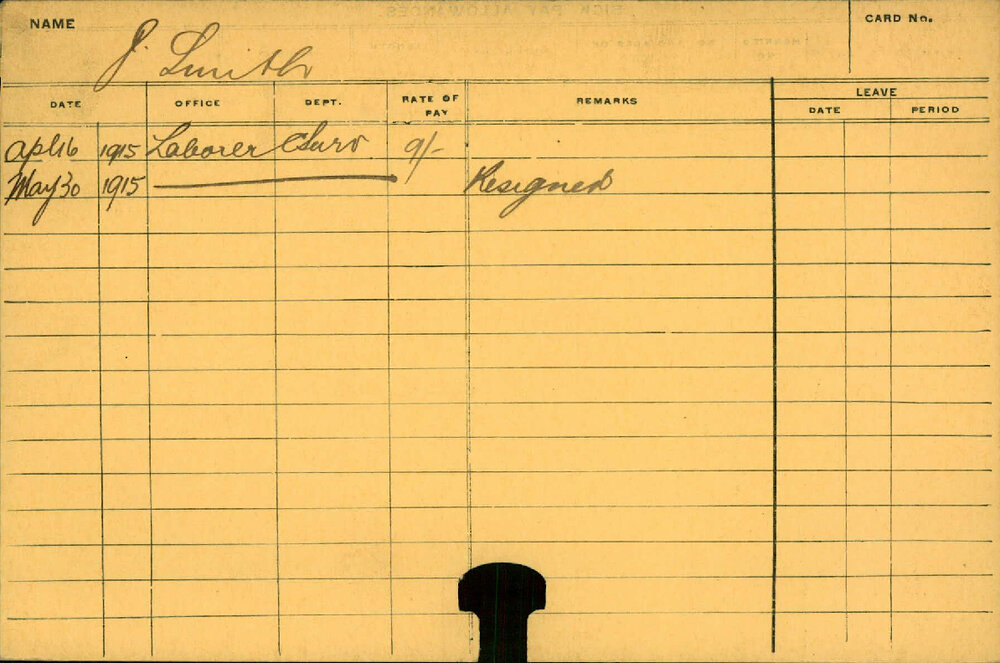 NAME
J. Smith
CARD No.
DATE OFFICE DEPT. RATE OF PAY REMARKS LEAVE
DATE PERIOD
Apl 16 1915 Laborer CSurv 9/-
May 30 1915 Resigned